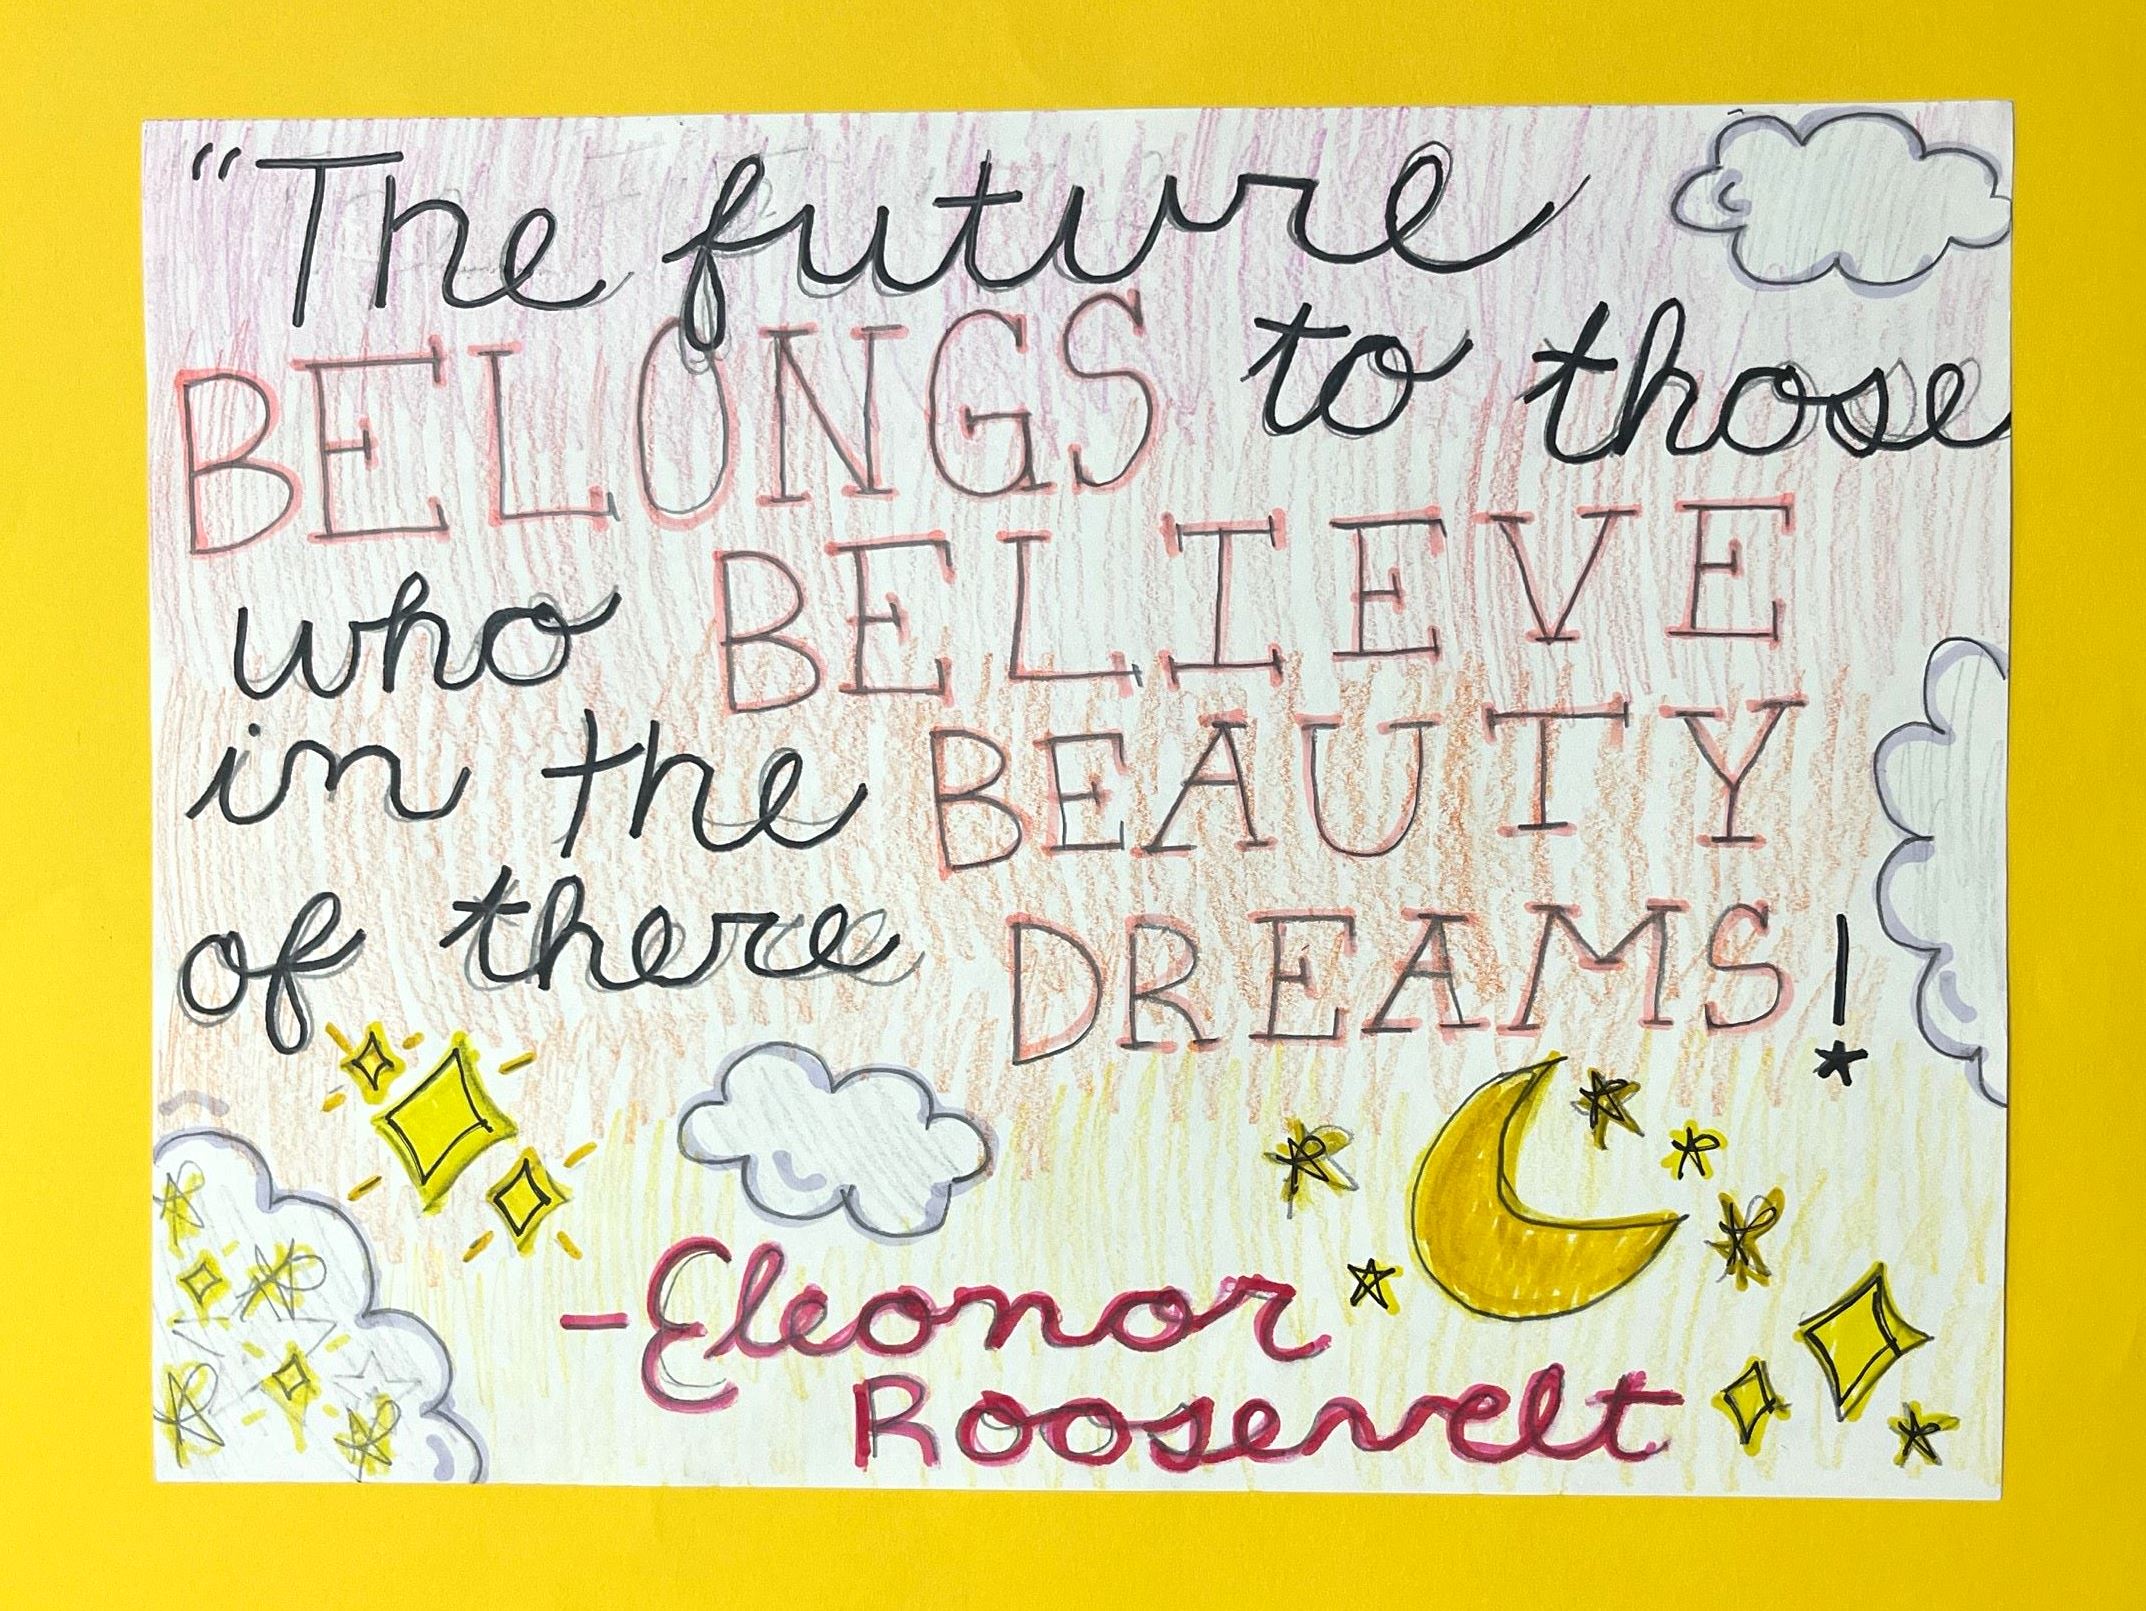 "The future
BELONGS to those
who BELIEVE
in the BEAUTY
of there DREAMS!
-Eleonor
Roosevelt